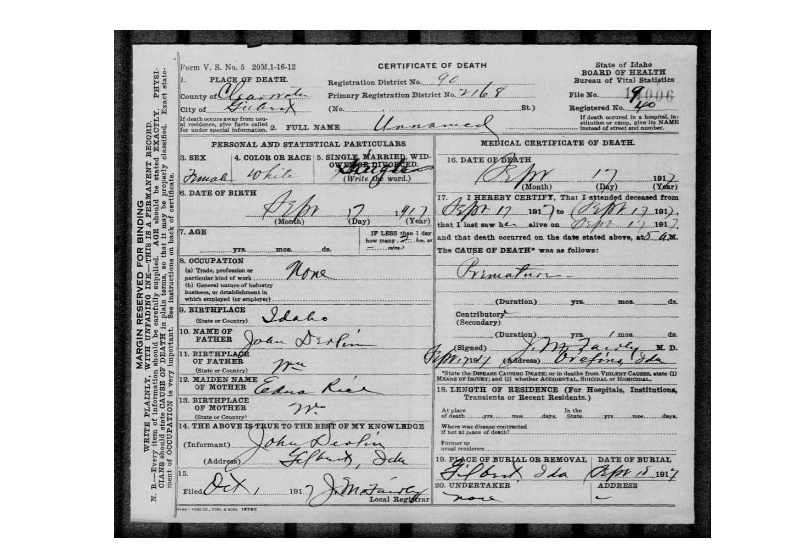 Form V. S. No. 5 20M.1-16-12
CERTIFICATE OF DEATH
State of Idaho
BOARD OF HEALTH
Bureau of Vital Statistics
1. PLACE OF DEATH.
County of Clearwater
City of Gilbert
If death occurs away from usual residence, give facts called for under special information.
Registration District No. 90
Primary Registration District No. 2168
(No. St.)
File No.
Registered No. 40
If death occured in a hospital, institution or camp, give its NAME instead of street and number.
2. FULL NAME Unnamed
PERSONAL AND STATISTICAL PARTICULARS
3. SEX Female
4. COLOR OR RACE White
5. SINGLE, MARRIED, WIDOWED OR DIVORCED. Single
(Write the word.)
6. DATE OF BIRTH
Sept 17 1917
(Month) (Day) (Year)
7. AGE
yrs. mos. ds.
IF LESS than 1 day how many hrs. or mins.?
8. OCCUPATION None
(a) Trade, profession or particular kind of work
(b) General nature of industry business, or establishment in which employed (or employer)
9. BIRTHPLACE Idaho
(State or Country)
10. NAME OF FATHER John
11. BIRTHPLACE OF FATHER
(State or Country)
12. MAIDEN NAME OF MOTHER Edna
13. BIRTHPLACE OF MOTHER
(State or Country)
14. THE ABOVE IS TRUE TO THE BEST OF MY KNOWLEDGE
(Informant) John
(Address) Gilbert, Ida
15.
Filed Oct 1 1917
Local Registrar
MEDICAL CERTIFICATE OF DEATH.
16. DATE OF DEATH
Sept 17 1917
(Month) (Day) (Year)
17. I HEREBY CERTIFY, That I attended deceased from
Sept 17 1917 to Sept 17, 1917,
that I last saw her alive on Sept 17 1917
and that death occurred on the date stated above, at 5 a.M.
The CAUSE OF DEATH* was as follows:
Premature
(Duration) yrs. mos. ds.
Contributory
(Secondary)
(Duration) yrs. mos. ds.
(Signed) M. D.
(Address) Orofino, Ida
*State the DISEASE CAUSING DEATH; or in deaths from VIOLENT CAUSES, state (1) MEANS OF INJURY; and (2) whether ACCIDENTAL, SUICIDAL or HOMICIDAL.
18. LENGTH OF RESIDENCE (For Hospitals, Institutions, Transients or Recent Residents.)
At place of death yrs. mos. days. In the State yrs. mos. days.
Where was disease contracted if not at place of death?
Former or usual residence
19. PLACE OF BURIAL OR REMOVAL DATE OF BURIAL
Gilbert, Ida Sept 18 1917
20. UNDERTAKER ADDRESS
none
MARGIN RESERVED FOR BINDING
WRITE PLAINLY, WITH UNFADING INK—THIS IS A PERMANENT RECORD.
N. B.—Every item of information should be carefully supplied. AGE should be stated EXACTLY. PHYSICIANS should state CAUSE OF DEATH in plain terms, so that it may be properly classified. Exact statement of OCCUPATION is very important. See instructions on back of certificate.